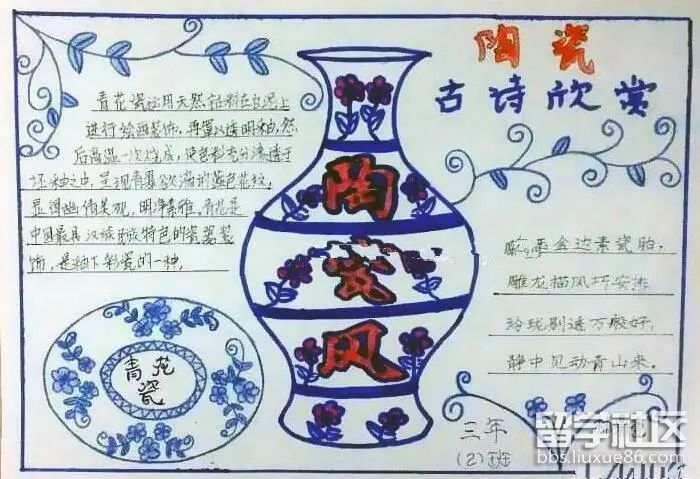 陶瓷
古诗欣赏
青花瓷运用天然钴料在白泥上
进行绘画装饰,再罩以透明釉,然
后高温一次烧成,使色料充分渗透于
坯釉之中,呈现青翠欲滴的蓝色花纹,
显得幽倩美观,明净素雅。青花是
中国最具汉族民族特色的瓷器装
饰,是釉下彩瓷的一种,
陶瓷风
青花瓷
金边素瓷胎,
雕龙描凤巧安排
玲珑剔透万般好,
静中见动青山来。
三年
(2)班
留学社区
bbs.liuxue86.com